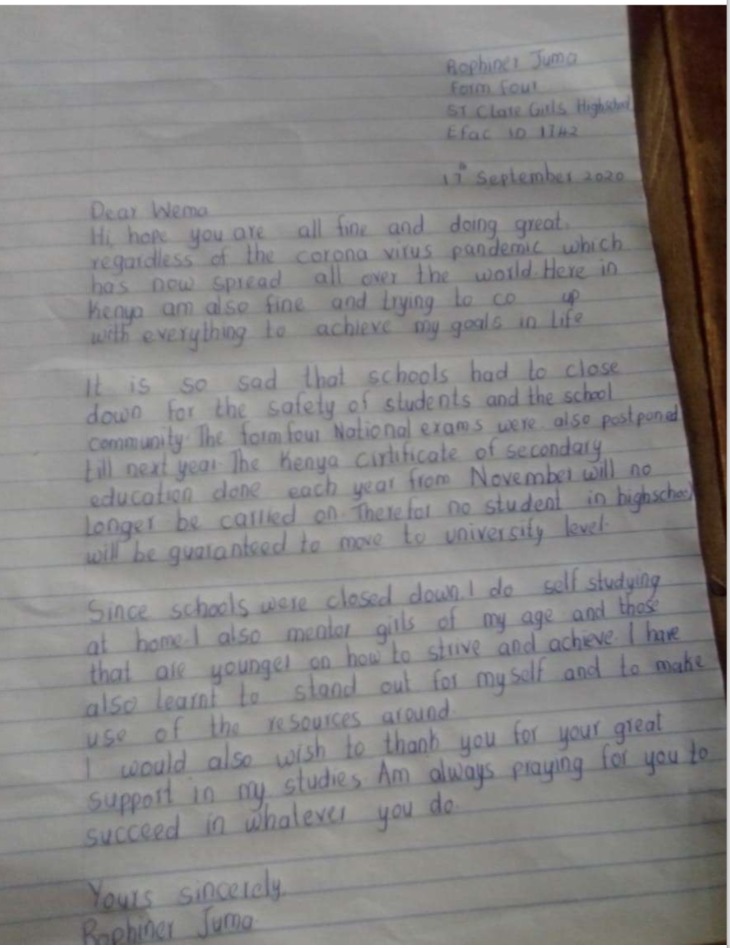 Rophiner Juma
Form four
ST Clare Girls Highschool
Efac ID 1742
17th September 2020
Dear Wema
Hi, hope you are all fine and doing great.
regardless of the corona virus pandemic which
has now spread all over the world. Here in
Kenya am also fine and trying to co up
with everything to achieve my goals in life
It is so sad that schools had to close
down for the safety of students and the school
community. The form four National exams were also postponed
till next year. The Kenya cirtificate of secondary
education done each year from November will no
longer be carried on. Therefor no student in highschool
will be guaranteed to move to university level.
Since schools were closed down, I do self studying
at home. I also mentor girls of my age and those
that are younger on how to strive and achieve. I have
also learnt to stand out for myself and to make
use of the resources around.
I would also wish to thank you for your great
support in my studies. Am always praying for you to
succeed in whatever you do.
Yours sincerely.
Rophiner Juma.